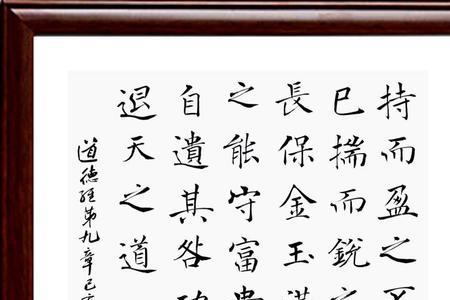 持而盈之不
已揣而銳之
長保金玉滿
之能守富貴
自遺其咎功
退天之道
道德經第九章己